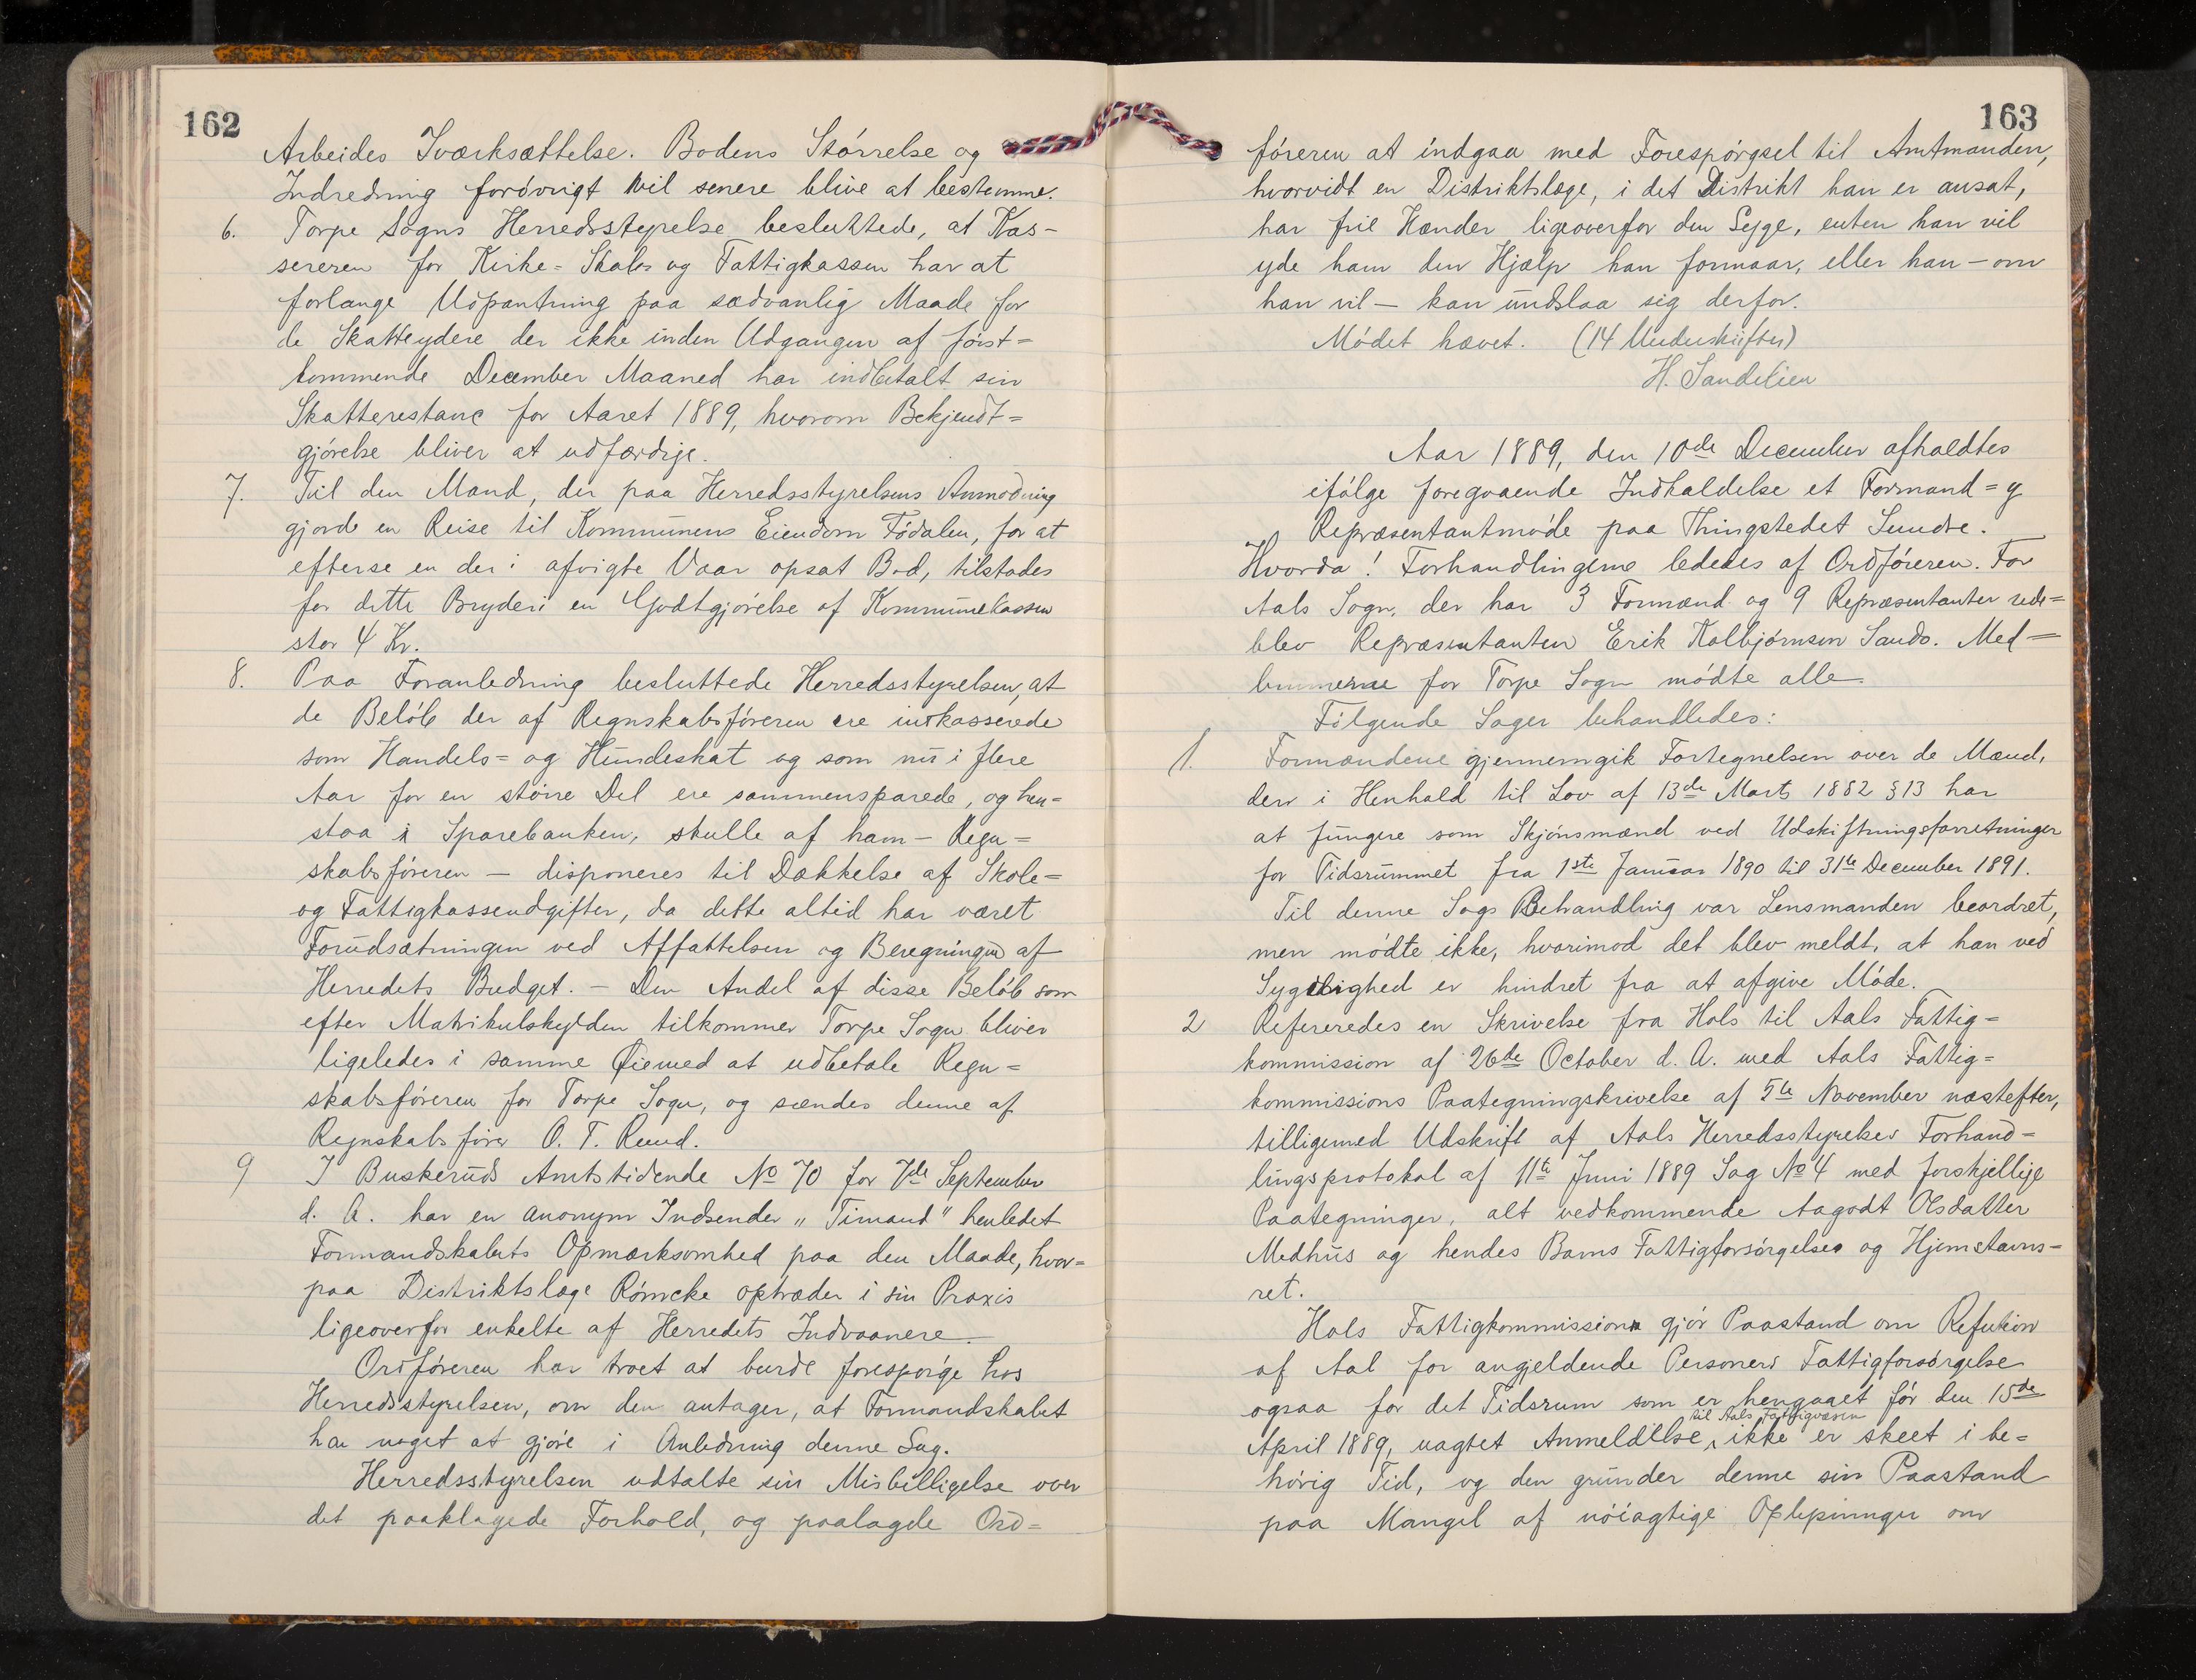 162
Arbeides Iværksættelse. Bodens Størrelse og
Indredning forøvrigt vil senere blive at bestemme.
6. Torpe Sogns Herredsstyrelse besluttede, at Kas-
sereren for Kirke= Skole og Fattigkassen har at
forlange Udpantning paa sædvanlig Maade for
de Skatteydere der ikke inden Udgangen af først=
kommende December Maaned har indbetalt sin
Skatterestance for Aaret 1889, hvorom Bekjendt=
gjørelse bliver at udfærdige.
7. Til den Mand, der paa Herredsstyrelsens Anmodning
gjorde en Reise til Kommunens Eiendom Fødalen, for at
efterse en der i afvigte Vaar opsat Bod, tilstodes
for dette Bryderi en Godtgjørelse af Kommunekassen
stor 4 Kr.
8. Paa Foranledning besluttede Herredsstyrelsen, at
de Beløb der af Regnskabsføreren ere indkasserede
som Handels= og Hundeskat og som nu i flere
Aar for en større Del ere sammensparede, og hen=
staa i Sparebanken, skulle af ham - Regn=
skabsføreren - disponeres til Dækkelse af Skole=
og Fattigkasseudgifter, da dette altid har været
Forudsætningen ved Affattelsen og Beregningen af
Herredets Budget. - Den Andel af disse Beløb som
efter Matrikulskylden tilkommer Torpe Sogn bliver
ligeledes i samme Øiemed at udbetale Regn=
skabsføreren for Torpe Sogn, og sendes denne af
Regnskabsfører O. T. Ruud.
9 I Buskeruds Amtstidende No 70 for 7de September
d. A. har en anonym Indsender „Timand" henledet
Formandskabets Opmærksomhed paa den Maade, hvor=
paa Distriktslæge Rømcke optræder i sin Praxis
ligeoverfor enkelte af Herredets Indvaanere.
Ordføreren har troet at burde forespørge hos
Herredsstyrelsen, om den antager, at Formandskabet
har noget at gjøre i Anledning denne Sag.
Herredsstyrelsen udtalte sin Misbilligelse over
det paaklagede Forhold, og paalagde Ord=
163
føreren at indgaa med Forespørgsel til Amtmanden,
hvorvidt en Distriktslæge, i det Distrikt han er ansat,
har frie Hænder ligeoverfor den Syge, enten han vil
yde ham den Hjælp han formaar, eller han - om
han vil - kan undslaa sig derfor.
Mødet hævet. (14 Underskrifter)
H. Sandelien
Aar 1889, den 10de December afholdtes
ifølge foregaaende Indkaldelse et Formand= g
Repræsentantmøde paa Thingstedet Sundre.
Hvorda! Forhandlingerne lededes af Ordføreren. For
Aals Sogn, der har 3 Formænd og 9 Repræsentanter ude=
blev Repræsentanten Erik Kolbjørnsen Sando. Med=
lemmerne for Torpe Sogn mødte alle.
Følgende Sager behandledes:
1. Formændene gjennemgik Fortegnelsen over de Mænd,
der i Henhold til Lov af 13de Marts 1882 § 13 har
at fungere som Skjønsmænd ved Udskiftningsforretninger
for Tidsrummet fra 1ste Januar 1890 til 31te December 1891.
Til denne Sags Behandling var Lensmanden beordret,
men mødte ikke, hvorimod det blev meldt, at han ved
Sygelighed er hindret fra at afgive Møde.
2 Refereredes en Skrivelse fra Hols til Aals Fattig=
kommission af 26de October d. A. med Aals Fattig=
kommissions Paategningskrivelse af 5te November næstefter,
tilligemed Udskrift af Aals Herredsstyrelses Forhand=
lingsprotokol af 11te Juni 1889 Sag No 4 med forskjellige
Paategninger, alt vedkommende Aagodt Olsdatter
Medhus og hendes Barns Fattigforsørgelse og Hjemstavns-
ret.
Hols Fattigkommission gjør Paastand om Refusion
af Aal for angjeldende Personers Fattigforsørgelse
ogsaa for det Tidsrum som er hengaaet før den 15de
til Aals Fattigvæsen
April 1889, uagtet Anmeldelse, ikke er skeet i be=
hørig Tid, og den grunder denne sin Paastand
paa Mangel af nøiagtige Oplysninger om